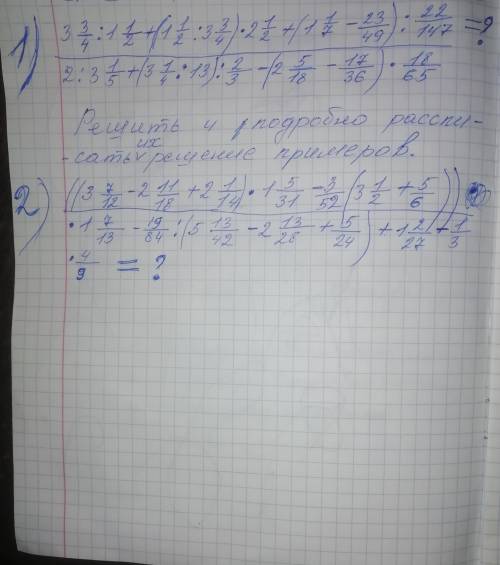 1) 3 3/4 : 1 1/2 + (1 1/2 : 3 3/4) · 2 1/2 + (1 1/7 - 23/49) : 22/147 = ?
2 : 3 1/5 + (3 1/4 : 13) : 2/3 - (2 5/18 - 17/36) · 18/65
Решить и подробно распи-
-сать их решение примеров.
2) ((3 7/12 - 2 11/18 + 2 1/14) · 1 5/31 - 3/52 (3 1/2 + 5/6))
· 1 7/13 - 19/84 : (5 13/42 - 2 13/28 + 5/24) + 1 2/27 - 1/3
· 4/9 = ?